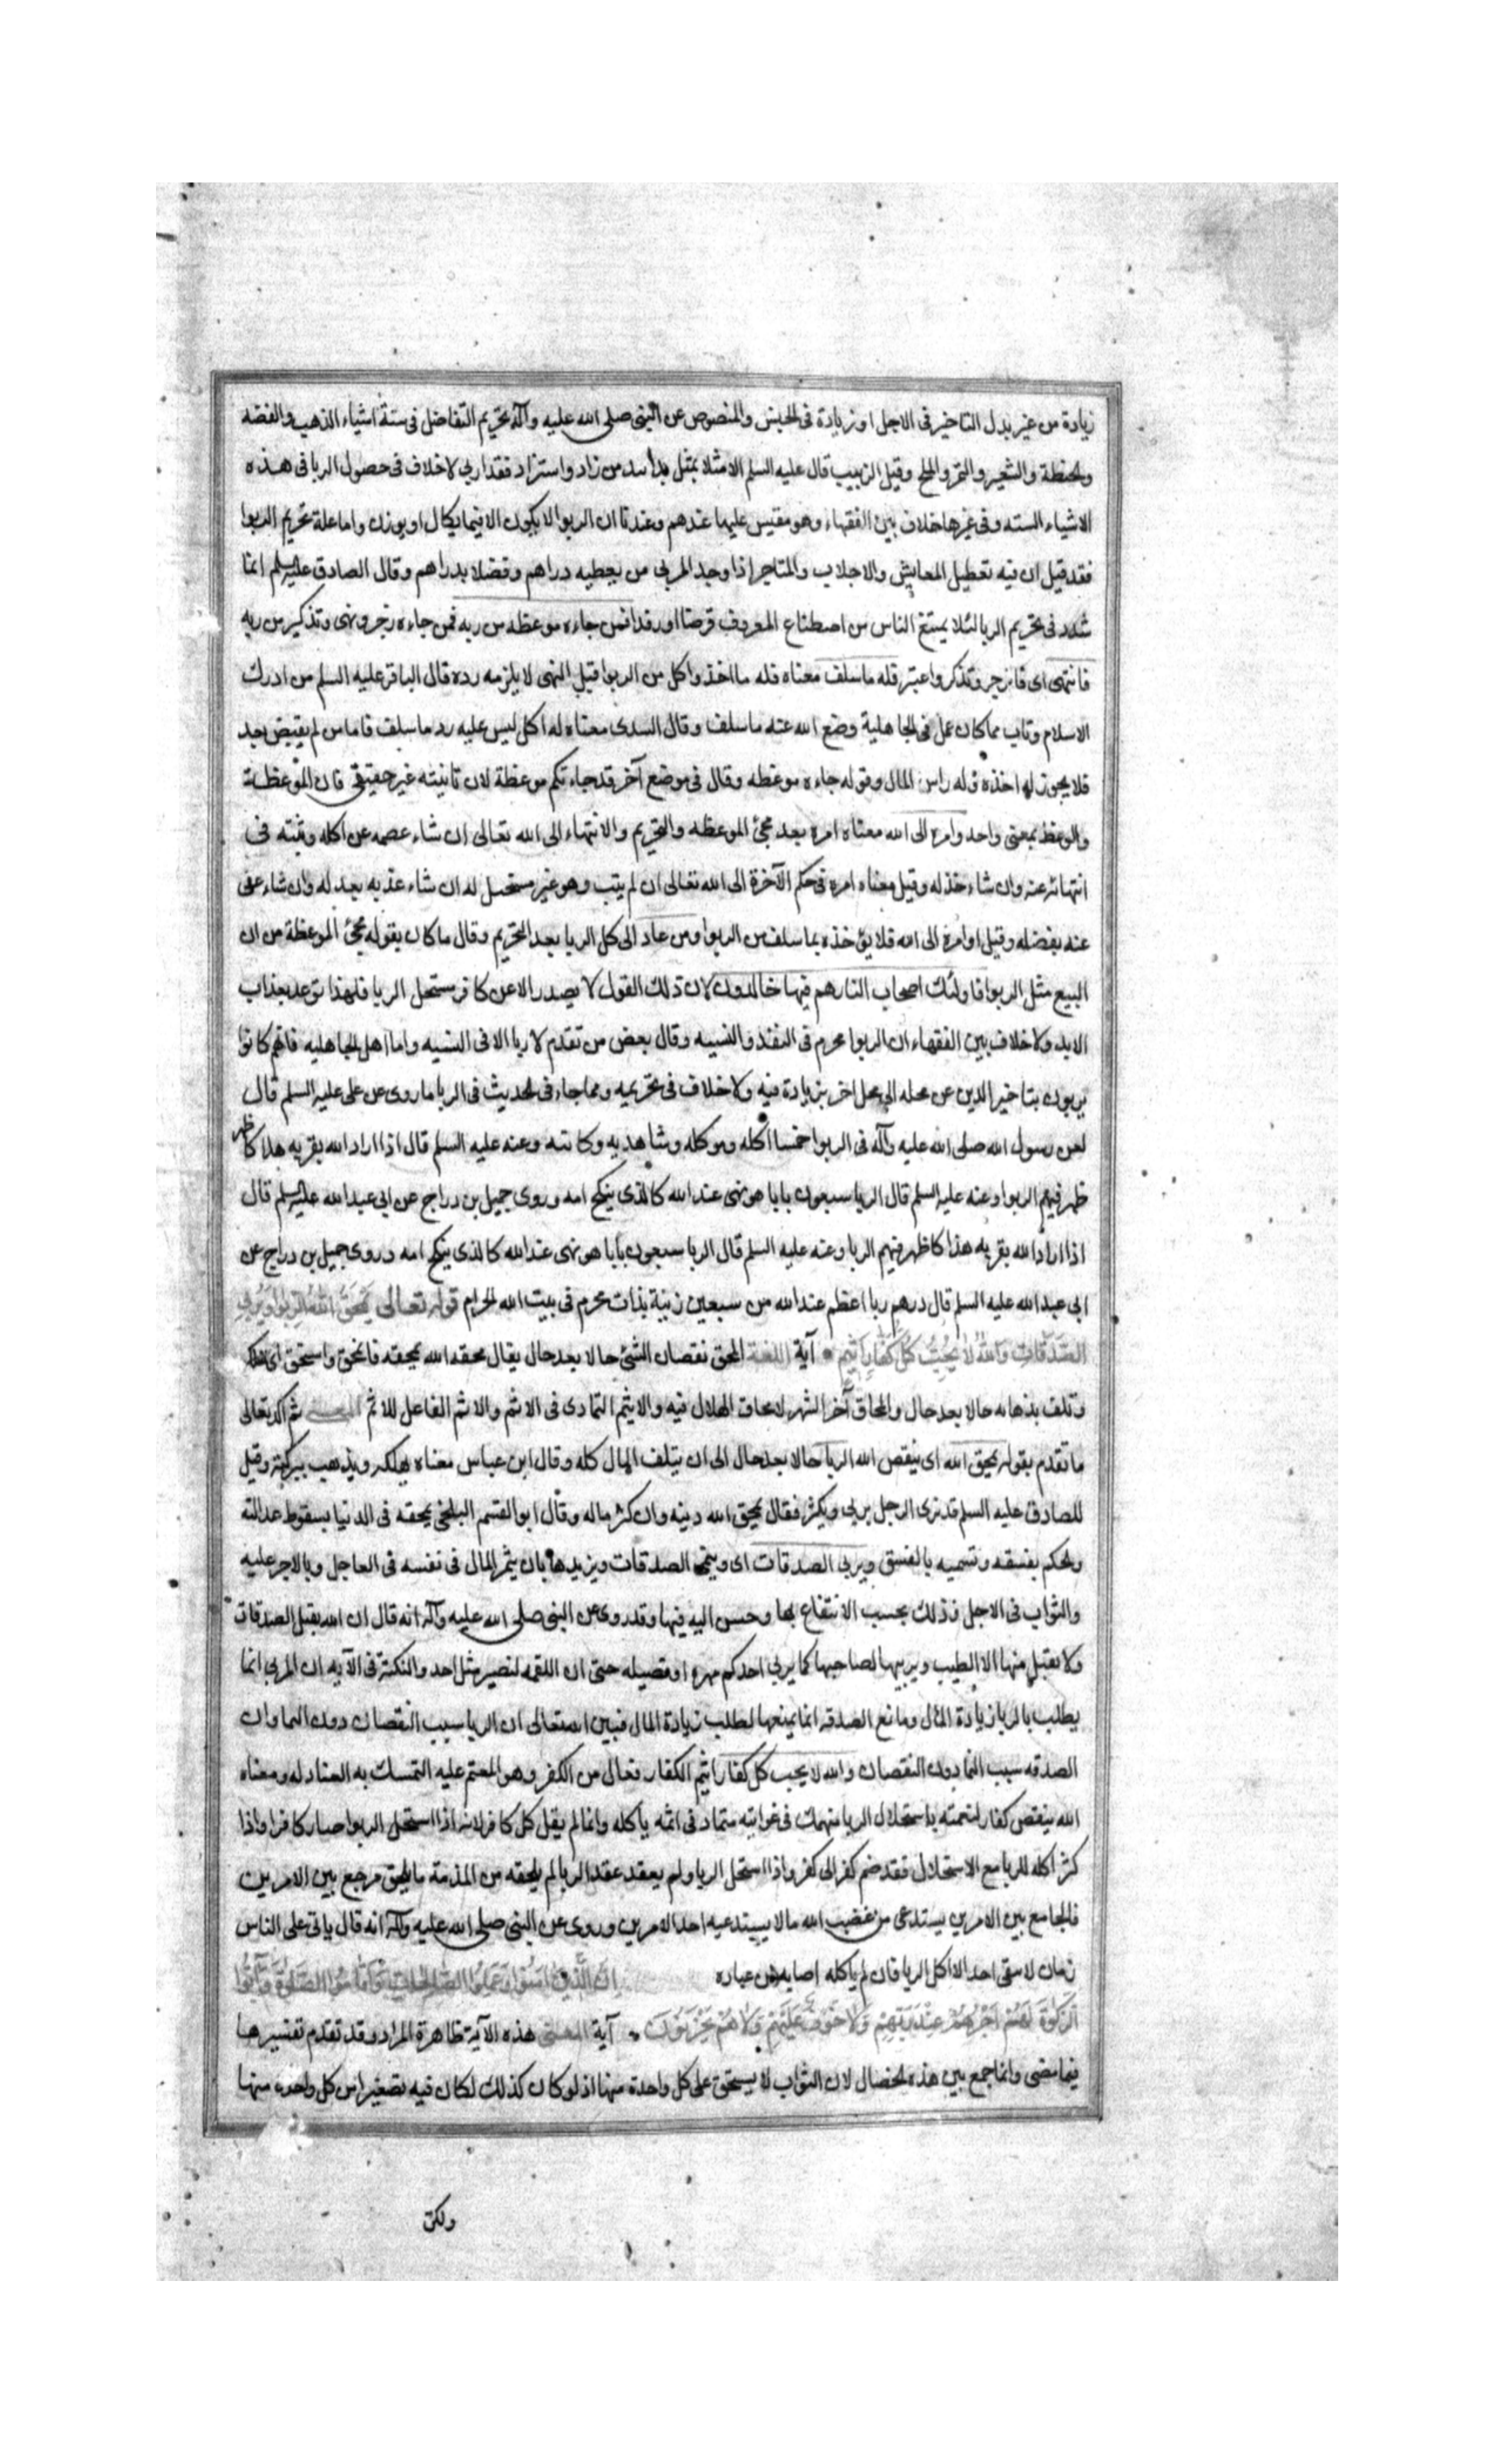 زيادة من غير بدل التاخير فى الاجل او زيادة فى الجنس والمنصوص عن النبى صلى الله عليه وآله تحريم التفاضل فى ستة اشياء الذهب والفضه
والحنطة والشعير والتمر والملح وقيل الزبيب قال عليه السلم الا مثلا بمثل يدا بيد من زاد واستزاد فقد اربى لا خلاف فى حصول الربا فى هذه
الاشياء الستة وفى غيرها خلاف بين الفقهاء وهو مقيس عليها عندهم وعندنا ان الربوا لا يكون الا فيما يكال او يوزن واما علة تحريم الربوا
فقد قيل ان فيه تعطيل المعايش والاجلاب والمتاجر اذا وجد المربى من يعطيه دراهم وفضلا بدراهم وقال الصادق عليه السلم انما
شدد فى تحريم الربا لئلا يمتنع الناس من اصطناع المعروف قرضا او رفدا فمن جاءه موعظه من ربه فمن جاءه زجر ونهى وتذكير من ربه
فانتهى اى فانزجر وتذكر واعتبر فله ما سلف معناه فله ما اخذ واكل من الربوا قبل النهى لا يلزمه رده قال الباقر عليه السلم من ادرك
الاسلام وتاب مما كان عمل فى الجاهلية وضع الله عنه ما سلف وقال السدى معناه له ما اكل ليس عليه رد ما سلف فاما من لم يقبض بعد
فلا يجوز له اخذه وله راس المال وقوله جاءه موعظه وقال فى موضع آخر قد جاءتكم موعظة لان تانيثه غير حقيقى فان الموعظة
والوعظ بمعنى واحد وامره الى الله معناه امره بعد مجئ الموعظه والتحريم والانتهاء الى الله تعالى ان شاء عصمه عن اكله وثبته فى
انتهائه عنه وان شاء خذله وقيل معناه امره فى حكم الآخرة الى الله تعالى ان لم يتب وهو غير مستحل له ان شاء عذبه بعدله وان شاء عفى
عنه بفضله وقيل وامره الى الله فلا يؤخذه بما سلف من الربوا ومن عاد الى كل الربا بعد التحريم وقال ما كان يقوله مجئ الموعظة من ان
البيع مثل الربوا فاولئك اصحاب النار هم فيها خالدون لان ذلك القول لا يصدر الا عن كافر مستحل الربا فلهذا توعد بعذاب
الابد ولا خلاف بين الفقهاء ان الربوا محرم فى النقد والنسيه وقال بعض من تقدم لا ربا الا فى النسيه واما اهل الجاهليه فانهم كانوا
يربون بتاخير الدين عن محله الى محل اخر بزيادة فيه ولا خلاف فى تحريمه ومما جاء فى الحديث فى الربا ما روى عن على عليه السلم قال
لعن رسول الله صلى الله عليه وآله فى الربوا خمسا اكله وموكله وشاهديه وكاتبه وعنه عليه السلم قال اذا اراد الله بقريه هلاكا
ظهر فيهم الربوا وعنه عليه السلم قال الربا سبعون بابا هونهى عند الله كالذى ينكح امه وروى جميل بن دراج عن ابى عبد الله عليه السلم قال
اذا اراد الله بقريه هذا كا ظهر فيهم الربا وعنه عليه السلم قال الربا سبعون بابا هونهى عند الله كالذى ينكح امه دروى جميل بن دراج عن
ابى عبد الله عليه السلم قال درهم ربا اعظم عند الله من سبعين زنية بذات محرم فى بيت الله الحرام قوله تعالى يَمْحَقُ اللهُ الرِّبوا وَيُرْبِى
الصَّدَقَاتِ وَاللهُ لَا يُحِبُّ كُلَّ كَفَّارٍ اَثِيمٍ آية اللغة المحق نقصان الشئ حالا بعد حال يقال محقه الله يمحقه فانمحق وامتحق اى هلك
وتلف بذهابه حالا بعد حال والمحاق آخر الشهر لامحاق الهلال فيه والاثيم التمادى فى الاثم والاثم الفاعل للاثم المعنى ثم اكد تعالى
ما تقدم بقوله يمحق الله اى ينقص الله الربا حالا بعد حال الى ان يتلف المال كله وقال ابن عباس معناه يهلكه ويذهب ببركته وقيل
للصادق عليه السلم قد نرى الرجل يربى ويكثر فقال يمحق الله دينه وان كثر ماله وقال ابو القسم البلخى يمحقه فى الدنيا بسقوط عدالته
والحكم بفسقه وتسميه بالفسق ويربى الصدقات اى وينمى الصدقات ويزيدها بان يثمر المال فى نفسه فى العاجل وبالاجر عليه
والثواب فى الاجل وذلك بحسب الانتفاع بها وحسن اليه فيها وقد روى عن النبى صلى الله عليه وآله انه قال ان الله يقبل الصدقات
ولا يقبل منها الا الطيب ويربيها لصاحبها كما يربى احدكم مهره او فصيله حتى ان اللقمه لتصير مثل احد والنكتة فى الآيه ان المربى انما
يطلب بالربا زيادة المال ومانع الصدقه انما يمنعها لطلب زيادة المال فبين الله تعالى ان الربا سبب النقصان دون النما وان
الصدقه سبب النما دون النقصان والله لا يحب كل كفار اثيم الكفار فعال من الكفر وهو المعتم عليه التمسك به المعتاد له ومعناه
الله ينقص كفار لنعمته باستحلال الربا منهمك فى غوايته متماد فى اثمه باكله وانما لم يقل كل كافر لانه اذا استحل الربوا صار كافرا واذا
كثر اكله للربا مع الاستحلال فقد ضم كفر الى كفر واذا استحل الربا ولم يعقد عقد الربا لم يلحقه من المذمة ما يلحق من جمع بين الامرين
فالجامع بين الامرين يستدعى من غضب الله ما لا يستدعيه احد الامرين وروى عن النبى صلى الله عليه وآله انه قال ياتى على الناس
زمان لا يبقى احد الا اكل الربا فان لم ياكله اصابه من غباره اِنَّ الَّذِينَ آمَنُوا وَعَمِلُوا الصَّالِحَاتِ وَاَقَامُوا الصَّلٰوةَ وَآتَوُا
الزَّكٰوةَ لَهُمْ اَجْرُهُمْ عِنْدَ رَبِّهِمْ وَلَا خَوْفٌ عَلَيْهِمْ وَلَا هُمْ يَحْزَنُونَ آية المعنى هذه الآية ظاهرة المراد وقد تقدم تفسيرها
فيما مضى وانما جمع بين هذه الخصال لان الثواب لا يستحق على كل واحدة منها اذ لو كان كذلك لكان فيه تصغير امن كل واحده منها
ولكن